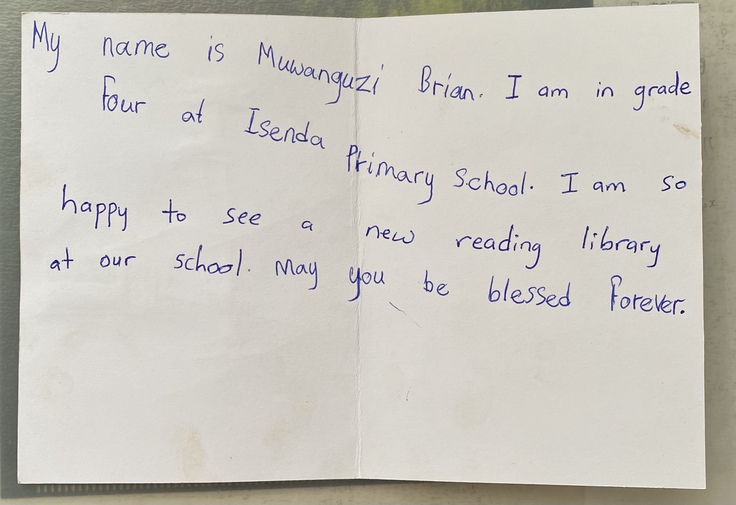 My name is Muwanguzi Brian. I am in grade
Four at Isenda Primary School. I am so
happy to see a new reading library
at our school. May you be blessed Forever.